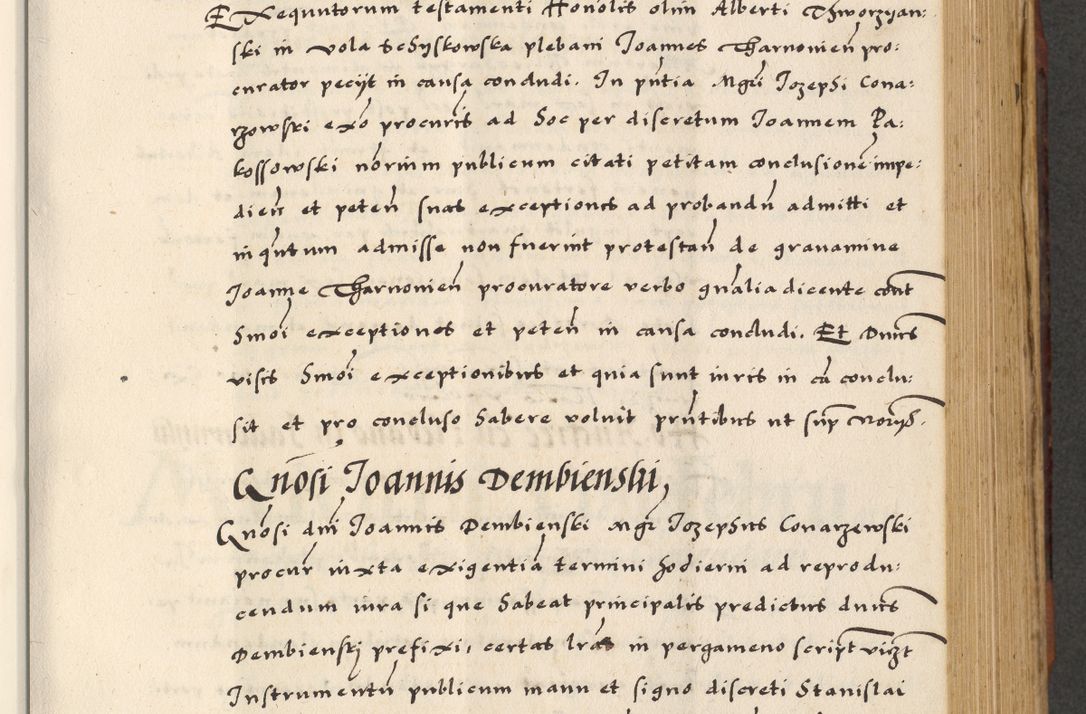 EXequutorum testamenti Honolis olim Alberti Thworzyan:
ski in vola Schyskowska plebani Joannes Tharnonień pro:
curator pecijt in causa concludi. In pñtia Mgri Jozephi Cona:
rzowski exo procuris ad Hoc per discretum Joannem Pa:
kossowski norium publicum citati petitam conclusionē impe:
dień et peteń suas exceptiones ad probandū admitti et
inqñtum admisse non fuerint protestań de gravamine
Joanne Tharnonień procuratore verbo gñalia dicente cont
Hmōi exceptiones et peteń in causa concludi. Et Dnus
visis Hmōi exceptionibus et quia sunt iuris in cā conclu:
sit et pro concluso Habere voluit prñtibus ut sup Noryo.
Gnōsi Joannis Dembienski,
Gnōsi dni Joannis Dembienski Mgr Jozephus Conarzewski
procur iuxta exigentiā termini hodierni ad reprodu:
cendum iura si que Habeat principalis predictus dnus
Dembienski prefixi, certas lras in pergameno script vizt
Instrumentū publicum manu et signo discreti Stanislai